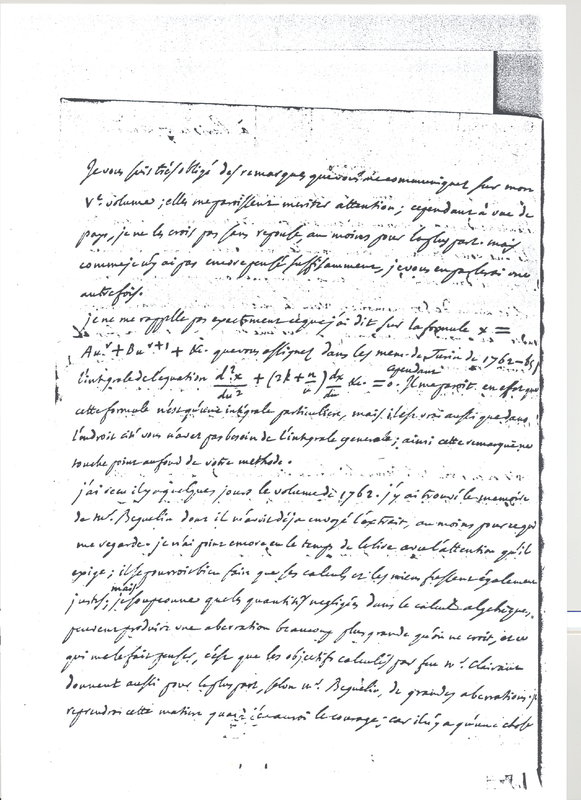 Je vous suis très obligé des remarques que vous me communiquez sur mon
Ve. volume; elles me paroissent meriter attention; cependant à vue de
pays, je ne les crois pas sans reponse, au moins pour la plus part. mais
comme je n'y ai pas encore pensé suffisamment, je vous en parlerai une
autre fois.
je ne me rappelle pas exactement ce que j'ai dit sur la formule x =
Au^r + Bu^{r+1} + &c. que vous assignez dans les mem. de Turin de 1762
l'integrale de l'equation d²x/du² + (2k + n/u) dx/du &c. = 0. cependant Il me paroit en effet que
cette formule n'est qu'une intégrale particuliere, mais il est vrai aussi que dans
l'endroit cité vous n'avez pas besoin de l'integrale generale; ainsi cette remarque ne
touche point au fond de votre methode.
j'ai reçu il y a quelques jours le volume de 1762. j'y ai trouvé le memoire
de Mr. Beguelin dont il m'avoit déja envoyé l'extrait, au moins pour ce qui
me regarde. je n'ai point encore eu le temps de le lire avec l'attention qu'il
exige; il se pourroit bien faire que ses calculs et les miens fussent également
justes; mais je soupçonne que les quantités negligées dans le calcul algebrique,
peuvent produire une aberration beaucoup plus grande qu'on ne croit, et ce
qui me le fait penser, c'est que les objectifs calculés par feu Mr. Clairaut
donnent aussi pour la plus part, selon Mr. Beguelin, de grandes aberrations. je
reprendrai cette matiere quand j'en aurai le courage; car il n'y a qu'une chose